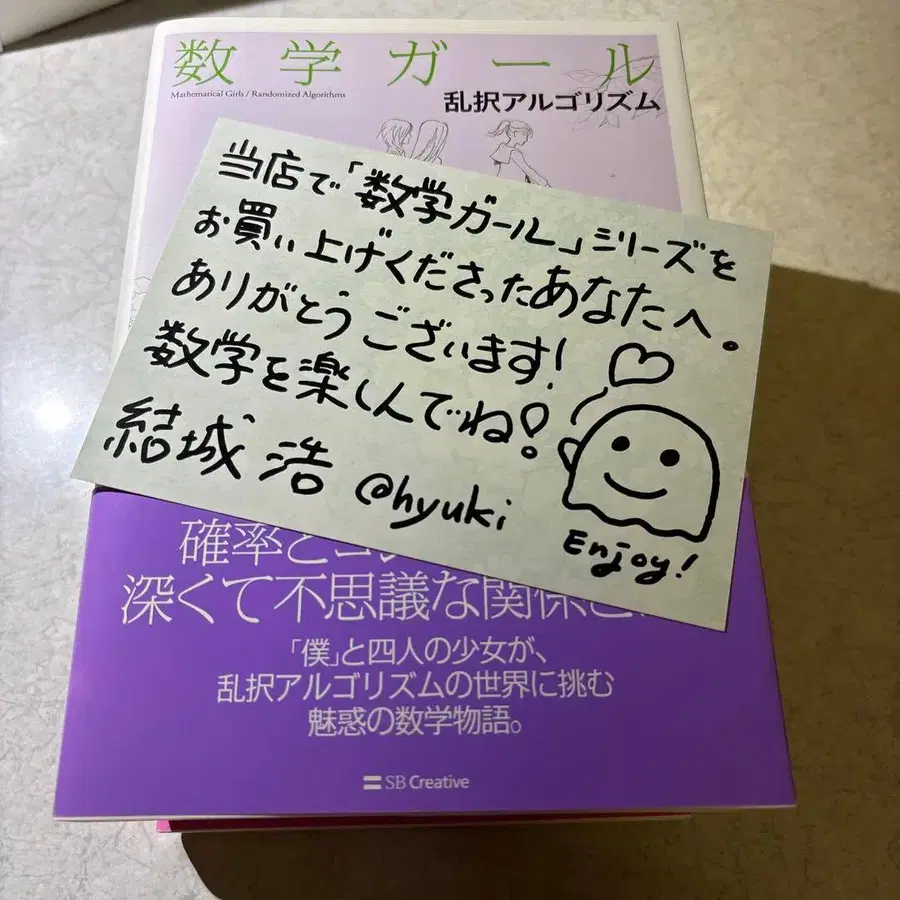 数学ガール
Mathematical Girls / Randomized Algorithms
乱択アルゴリズム
当店で「数学ガール」シリーズを
お買い上げくださったあなたへ。
ありがとうございます!
数学を楽しんでね!
結城 浩 @hyuki
Enjoy!
確率と
深くて不思議な関係
「僕」と四人の少女が、
乱択アルゴリズムの世界に挑む
魅惑の数学物語。
SB Creative